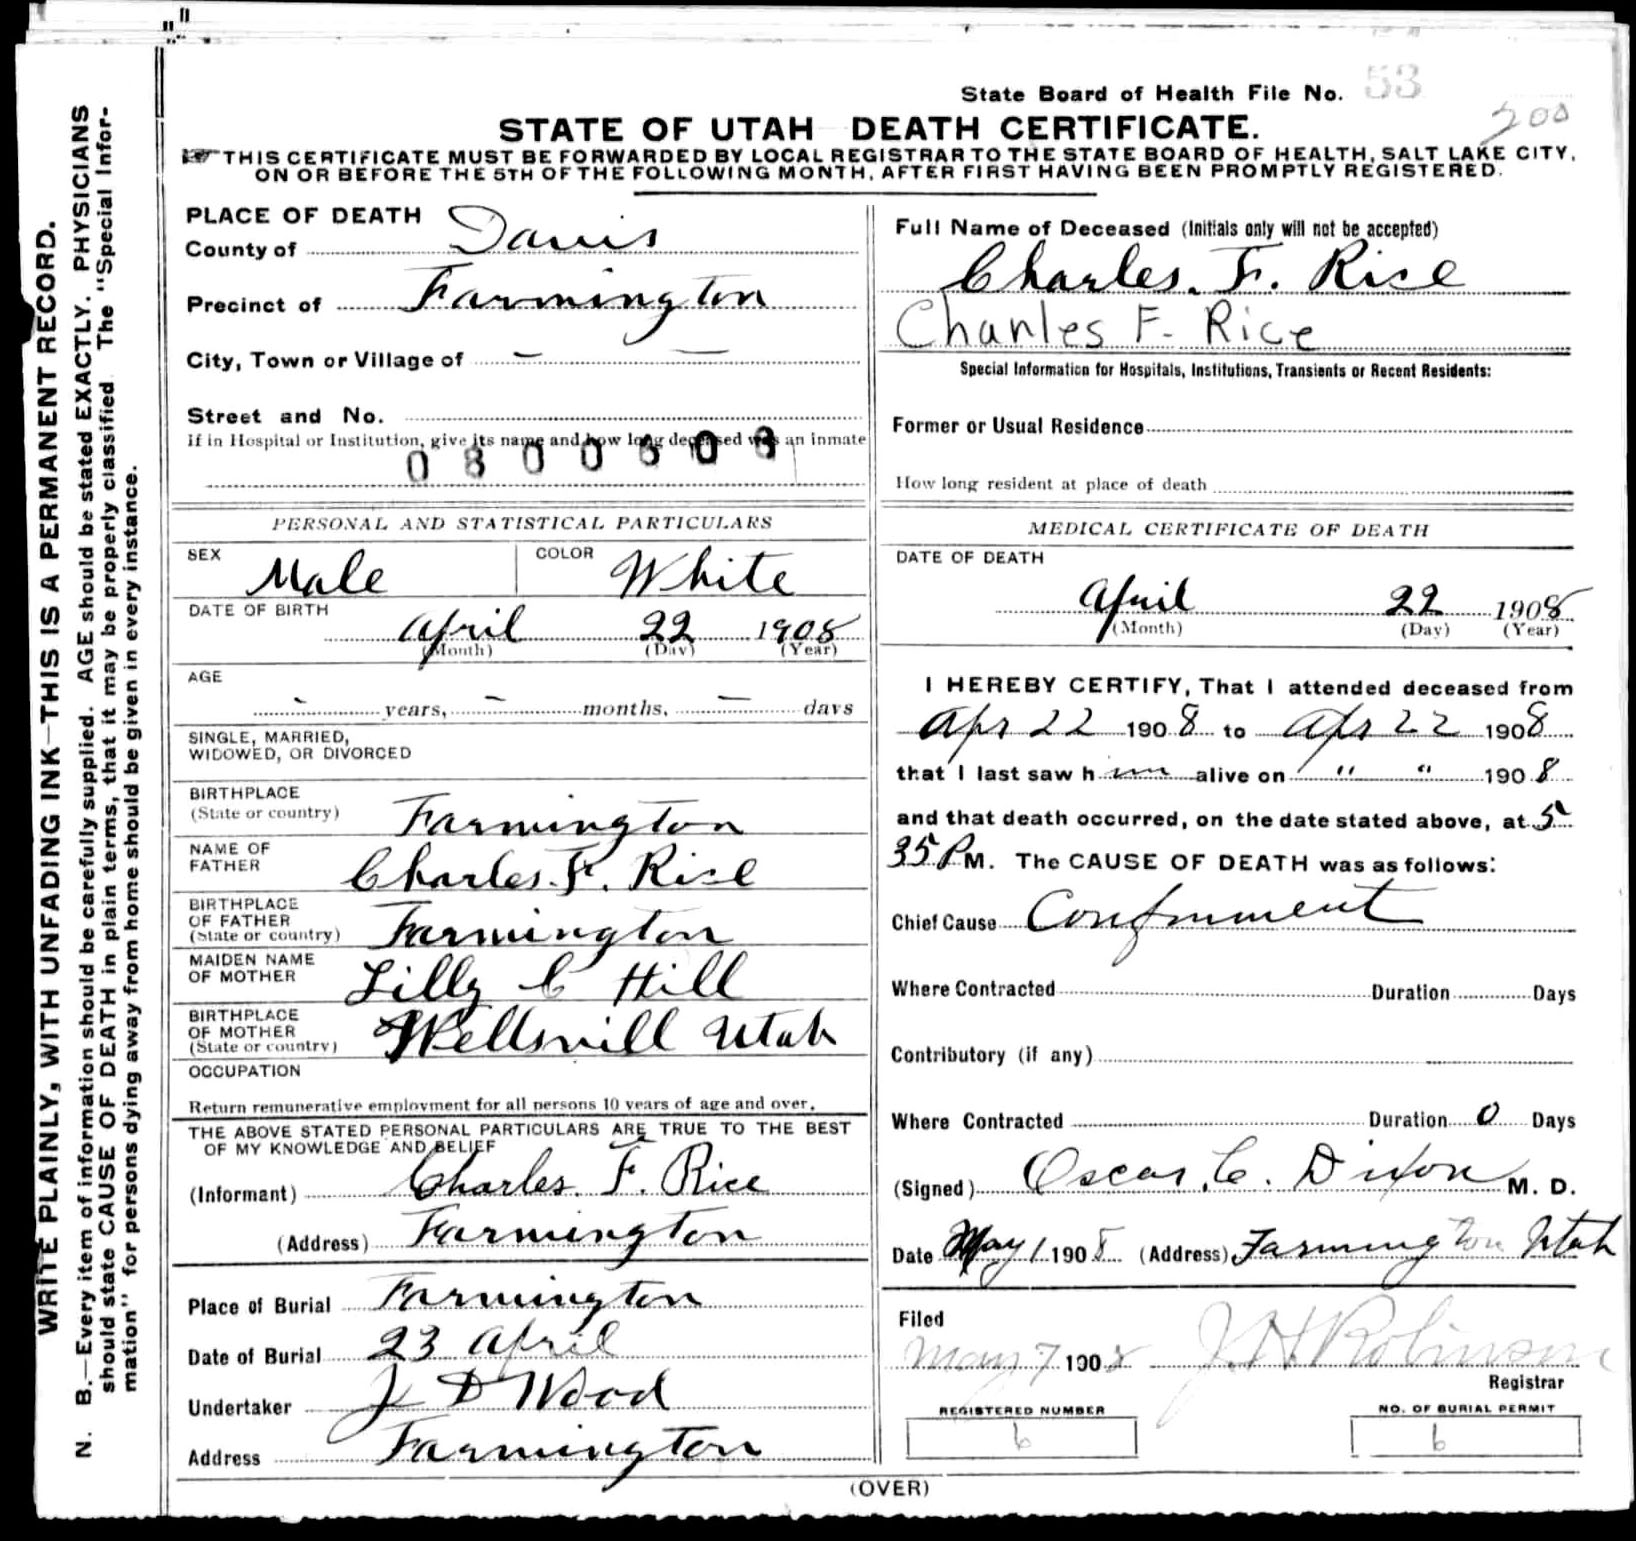 WRITE PLAINLY, WITH UNFADING INK—THIS IS A PERMANENT RECORD.
N. B.—Every item of information should be carefully supplied. AGE should be stated EXACTLY. PHYSICIANS
should state CAUSE OF DEATH in plain terms, that it may be properly classified. The "Special Infor-
mation" for persons dying away from home should be given in every instance.
State Board of Health File No. 53
200
STATE OF UTAH DEATH CERTIFICATE.
THIS CERTIFICATE MUST BE FORWARDED BY LOCAL REGISTRAR TO THE STATE BOARD OF HEALTH, SALT LAKE CITY,
ON OR BEFORE THE 5TH OF THE FOLLOWING MONTH, AFTER FIRST HAVING BEEN PROMPTLY REGISTERED.
PLACE OF DEATH
County of Davis
Precinct of Farmington
City, Town or Village of — —
Street and No.
If in Hospital or Institution, give its name and how long deceased was an inmate
PERSONAL AND STATISTICAL PARTICULARS
SEX Male COLOR White
DATE OF BIRTH
April 22 1908
(Month) (Day) (Year)
AGE
- years, - months, - days
SINGLE, MARRIED,
WIDOWED, OR DIVORCED
BIRTHPLACE
(State or country) Farmington
NAME OF
FATHER Charles. F. Rice
BIRTHPLACE
OF FATHER
(State or country) Farmington
MAIDEN NAME
OF MOTHER Lilly C Hill
BIRTHPLACE
OF MOTHER
(State or country) Wellsvill Utah
OCCUPATION
Return remunerative employment for all persons 10 years of age and over.
THE ABOVE STATED PERSONAL PARTICULARS ARE TRUE TO THE BEST
OF MY KNOWLEDGE AND BELIEF
(Informant) Charles. F. Rice
(Address) Farmington
Place of Burial Farmington
Date of Burial 23 April
Undertaker J D Wood
Address Farmington
Full Name of Deceased (Initials only will not be accepted)
Charles. F. Rice
Charles F. Rice
Special Information for Hospitals, Institutions, Transients or Recent Residents:
Former or Usual Residence
How long resident at place of death
MEDICAL CERTIFICATE OF DEATH
DATE OF DEATH
April 22 1908
(Month) (Day) (Year)
I HEREBY CERTIFY, That I attended deceased from
Apr 22 1908 to Apr 22 1908
that I last saw him alive on " " 1908
and that death occurred, on the date stated above, at 5
35 P M. The CAUSE OF DEATH was as follows:
Chief Cause Confinment
Where Contracted Duration Days
Contributory (if any)
Where Contracted Duration 0 Days
(Signed) Oscar. C. Dixon M. D.
Date May 1 1908 (Address) Farmington Utah
Filed
May 7 1908 J. H Robinson
Registrar
REGISTERED NUMBER
6
NO. OF BURIAL PERMIT
6
(OVER)